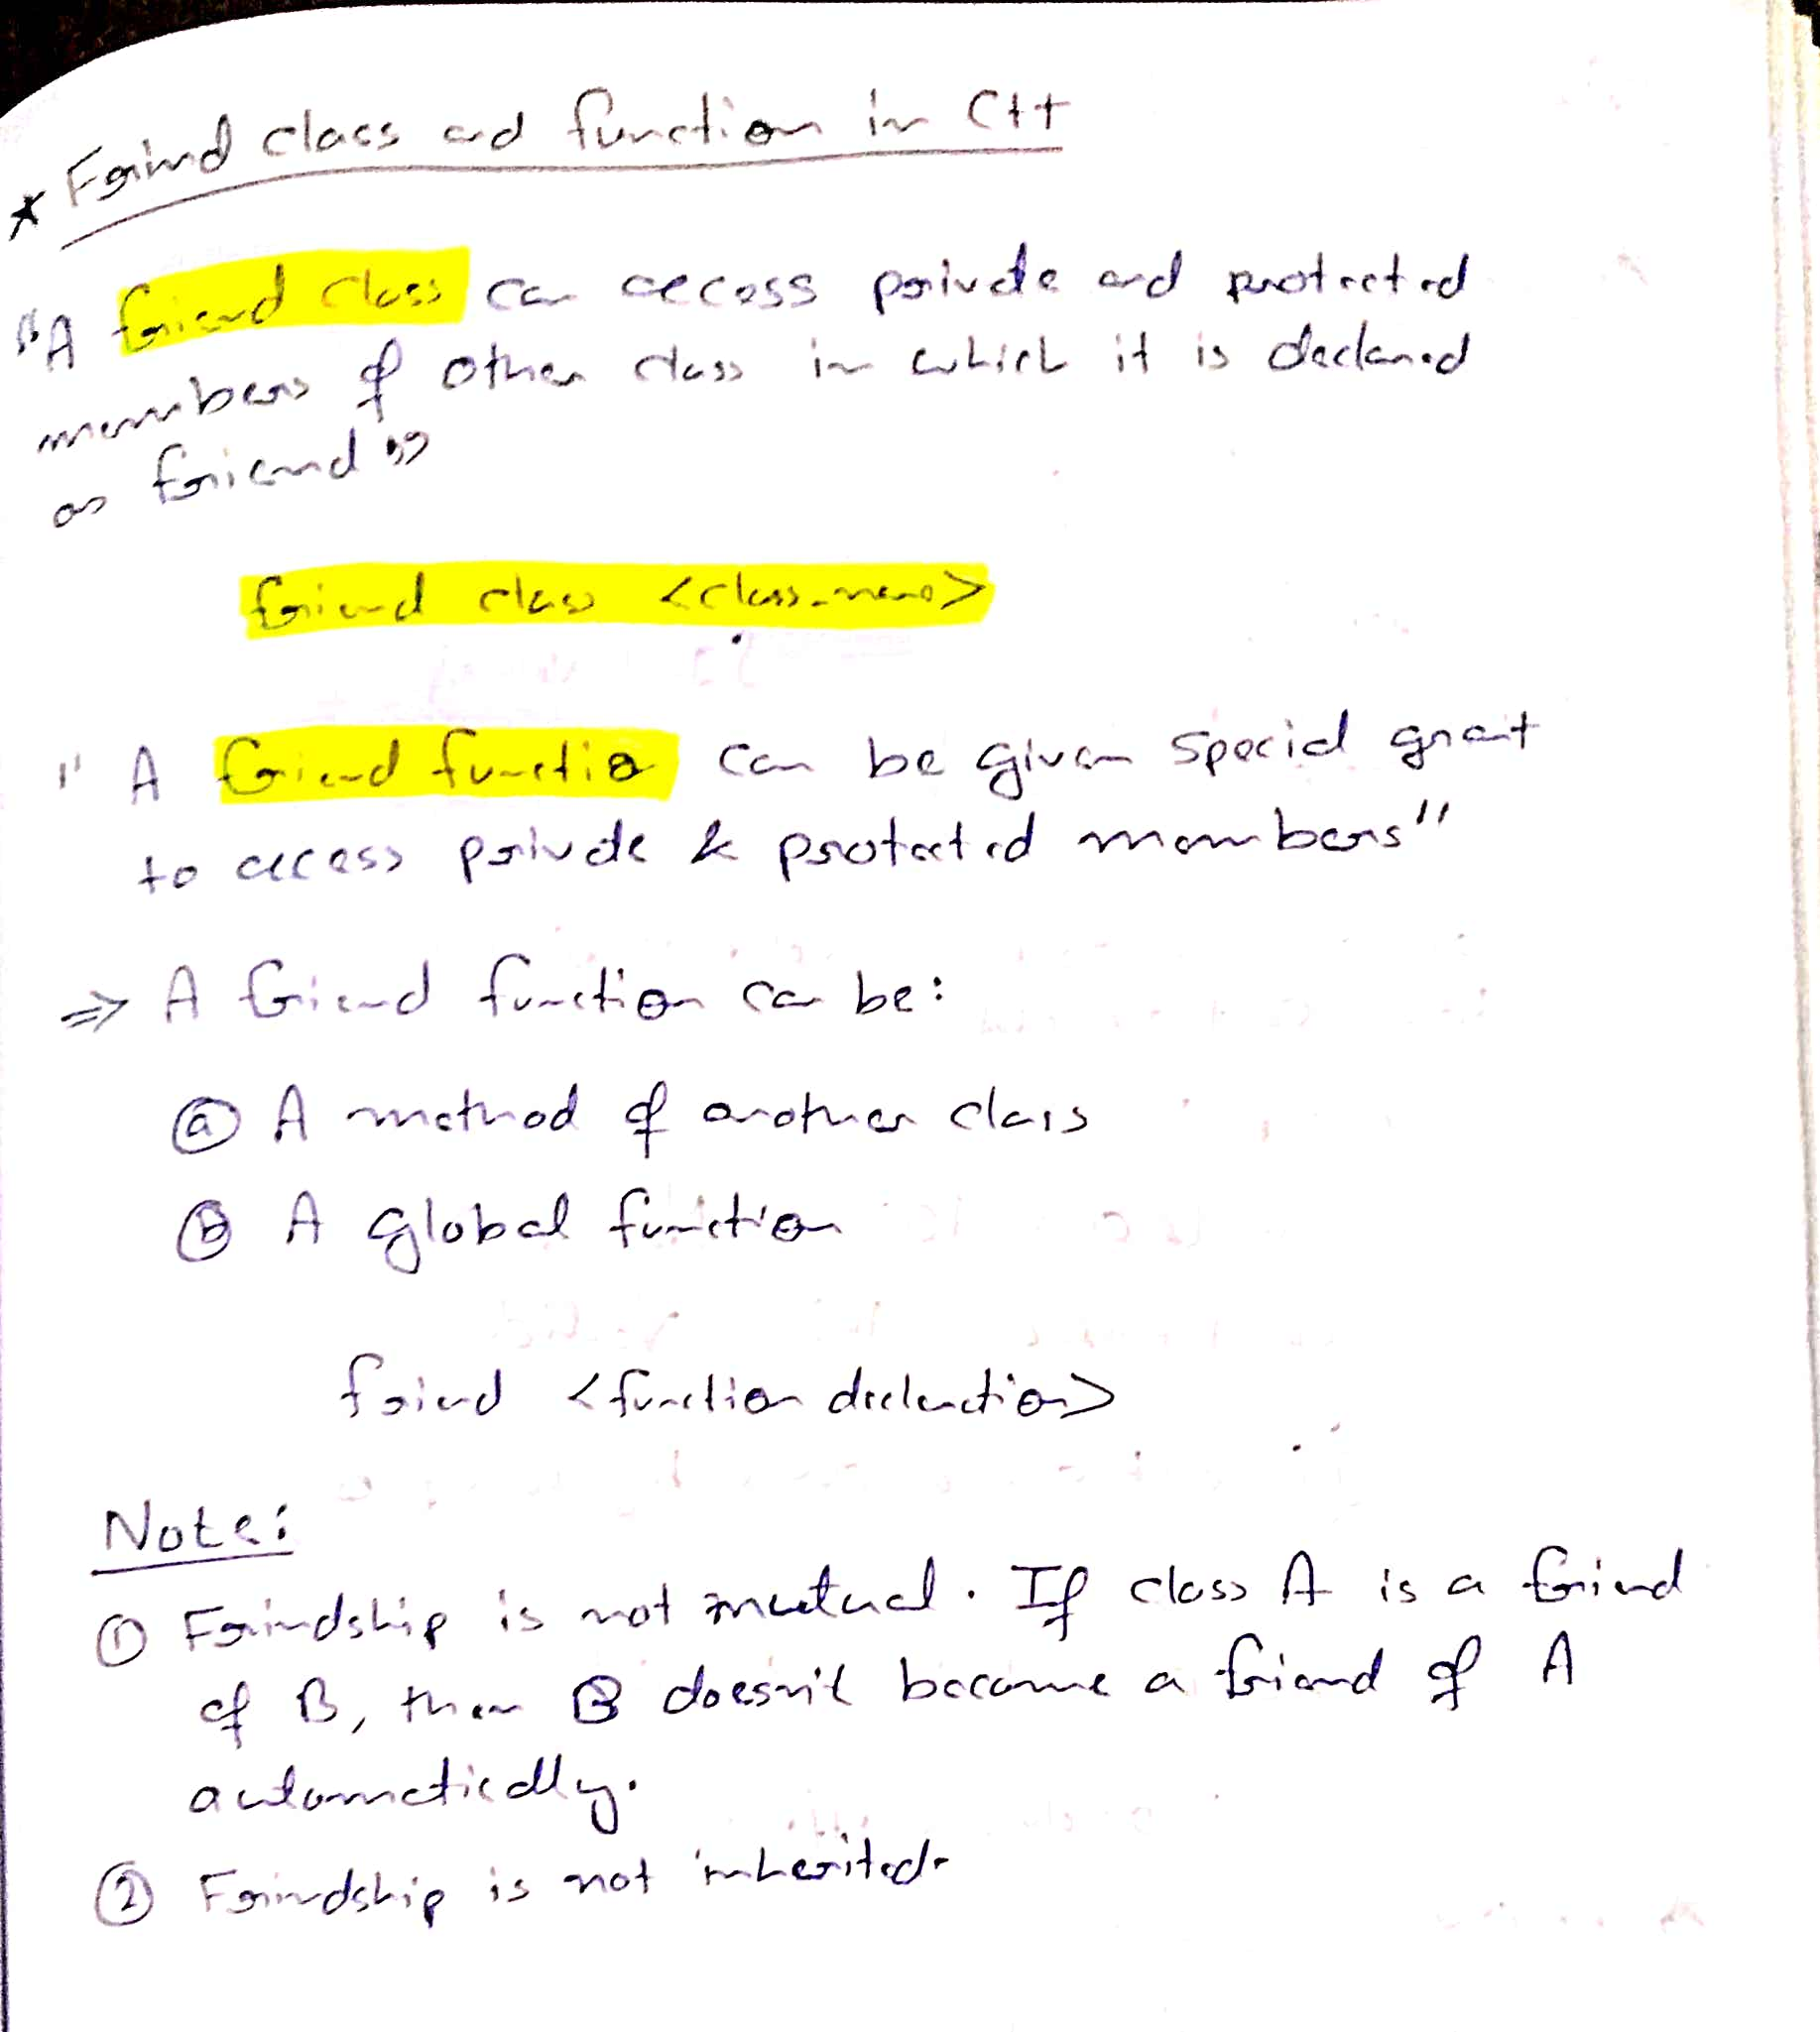 * Friend class and function in C++
"A friend class can access private and protected
members of other class in which it is declared
as friend"
friend class <class_name>
" A friend function can be given special grant
to access private & protected members"
⇒ A friend function can be:
ⓐ A method of another class
ⓑ A global function
friend <function declaration>
Note:
① Friendship is not mutual. If class A is a friend
of B, then B doesn't become a friend of A
automatically.
② Friendship is not inherited.